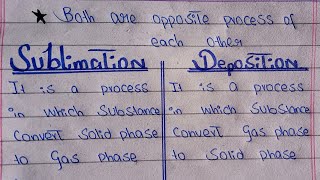 ★ Both are opposite process of
each other
Sublimation
It is a process
in which Substance
Convert Solid phase
to Gas phase
Deposition
It is a process
in which Substance
Convert gas phase
to Solid phase